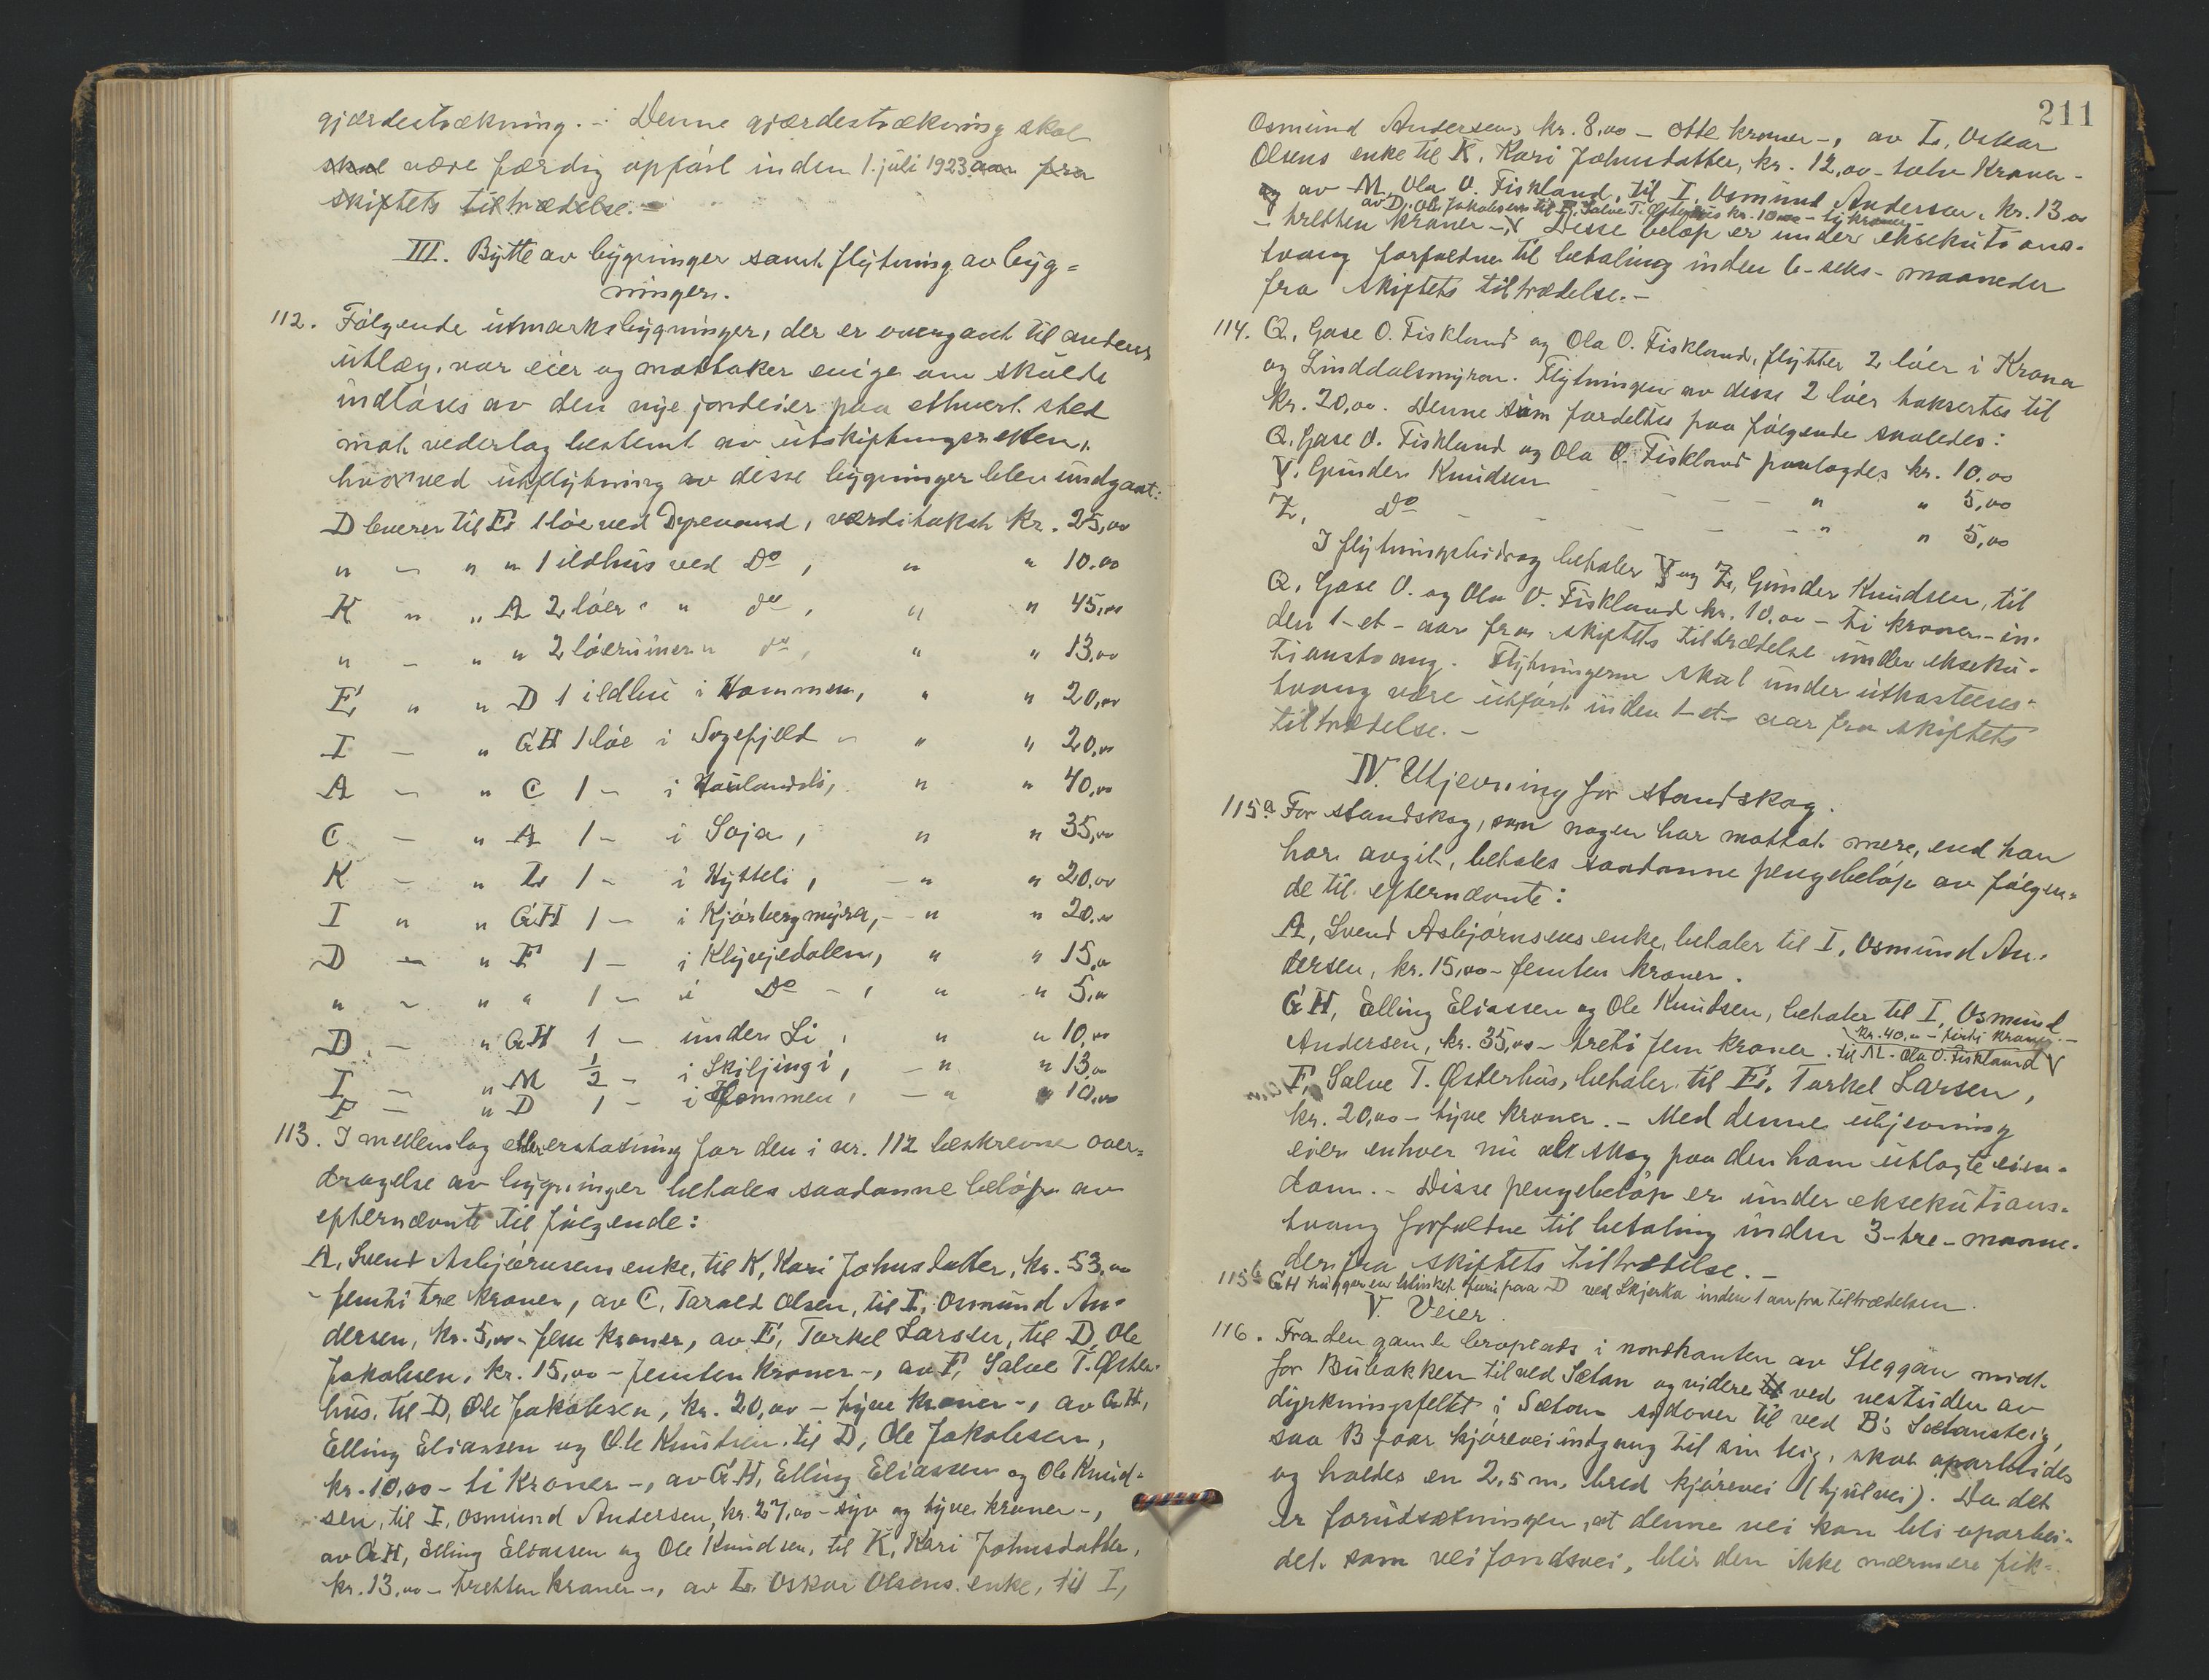 gjærdestrækning. - Denne gjærdestrækning skal
skal være færdig opført inden 1. juli 1923 aar fra
skiftets tiltrædelse. -
III. Bytte av bygninger samt flytning av byg=
ninger.
112. Følgende utmarksbygninger, der er overgaat til andens
utlæg, var eier og mottaker enige om skulde
indløses av den nye jordeier paa ethvert sted
mot vederlag bestemt av utskiftningsretten,
hvorved utflytning av disse bygninger blev undgaat:
D leverer til E, 1 løe ved Dyrevand, værditakst kr. 25,00
" - " " 1 ildhus ved Do, " " 10.00
K " " A 2 løer " do, " " 45,00
" - " " 2 løeruiner " do, " " 13,00
E, " " D 1 ildhus i Hommen, " " 20,00
I - " GH 1 løe i Sogefjeld " " " 20,00
A - " C 1 - i Haulandsli, " " 40,00
C - " A 1 - i Soja, " " 35,00
K - " L 1 - i Hytteli, - " " 20,00
I " " GH 1 - i Kjørbergmyra, - " " 20.00
D - " F 1 - i Klyvjedalen, " " 15,00
" - " " 1 - i Do -, " " 5,00
D - " GH 1 - under Li, " " 10,00
I - " M 1/2 - i Skiljingi, - " " 13,00
F - " D 1 - i Hommen, - " " 10,00
113. I mellemlag eller erstatning for den i nr. 112 beskrevne over=
dragelse av bygninger betales saadanne beløp av
efternævnte til følgende:
A, Svend Asbjørnsens enke, til K, Kari Johnsdatter, kr. 53,00
- femti tre kroner, av C, Tarald Olsen, til I, Osmund An=
dersen, kr. 5,00 - fem kroner, av E, Torkel Larsen, til D, Ole
Jakobsen, kr. 15,00 - femten kroner -, av F, Salve T. Øster=
hus, til D, Ole Jakobsen, kr. 20,00 - tyve kroner -, av GH,
Elling Eliassen og Ole Knudsen, til D, Ole Jakobsen,
kr. 10,00 - ti kroner -, av GH, Elling Eliassen og Ole Knud=
sen, til I, Osmund Andersen, kr. 27,00 - syv og tyve kroner -,
av GH, Elling Eliassen og Ole Knudsen, til K, Kari Johnsdatter,
kr. 13,00 - tretten kroner -, av L, Oskar Olsens enke, til I,
211
Osmund Andersen, kr. 8,00 - otte kroner -, av L, Oskar
Olsens enke til K, Kari Johnsdatter, kr. 12,00 - tolv kroner -
og av M, Ola O. Fiskland, til I, Osmund Andersen, kr. 13,00
av D, Ole Jakobsen til F, Salve T. Østerhus kr. 10,00 - ti kroner -
- tretten kroner -, V Disse beløp er under eksekutions=
tvang forfaldne til betaling inden 6 - seks - maaneder
fra skiftets tiltrædelse. -
114. Q, Gase O. Fiskland og Ola O. Fiskland, flytter 2 løer i Krona
og Linddalsmyran. Flytningen av disse 2 løer taksertes til
kr. 20,00. Denne sum fordeltes paa følgende saaledes:
Q, Gase O. Fiskland og Ola O. Fiskland paalagdes kr. 10,00
Y, Gunder Knudsen - - - - " " 5,00
Z, do - - - - - " " 5,00
I flytningsbidrag betaler Y og Z, Gunder Knudsen, til
Q, Gase O. og Ola O. Fiskland kr. 10,00 - ti kroner - in=
den 1 - et - aar fra skiftets tiltrædelse under ekseku=
tionstvang. Flytningerne skal under utkastelses=
tvang være utført inden 1 - et - aar fra skiftets
tiltrædelse. -
IV. Utjevning for standskog.
115a For standskog, som nogen har mottat mere, end han
har avgit, betales saadanne pengebeløp av følgen=
de til efternævnte:
A, Svend Asbjørnsens enke, betaler til I, Osmund An=
dersen, kr. 15,00 - femten kroner.
GH, Elling Eliassen og Ole Knudsen, betaler til I, Osmund
kr. 40,00 - firti kroner. -
Andersen, kr. 35,00 - treti fem kroner. til M. Ola O. Fiskland V
F, Salve T. Østerhus, betaler til E, Torkel Larsen,
kr. 20,00 - tyve kroner. - Med denne utjevning
eier enhver nu alt skog paa den ham utlagte eien=
dom. - Disse pengebeløp er under eksekutions=
tvang forfaldne til betaling inden 3 - tre - maane=
der fra skiftets tiltrædelse. -
115b GH hugger en blinket furu paa D ved Skjerka inden 1 aar fra tiltrædelsen.
V. Veier.
116. Fra den gamle broplads i nordkanten av Steggan midt
for Bubakken til ved Sætan og videre til ved vestsiden av
dyrkningsfeltet i Sætan sydover til ved B's Sætansteig,
saa B faar kjøreveiindgang til sin teig, skal oparbeides
og holdes en 2,5 m. bred kjørevei (hjulvei). Da det
er forutsætningen, at denne vei kan bli oparbei=
det som veifondsvei, blir den ikke nærmere fik=